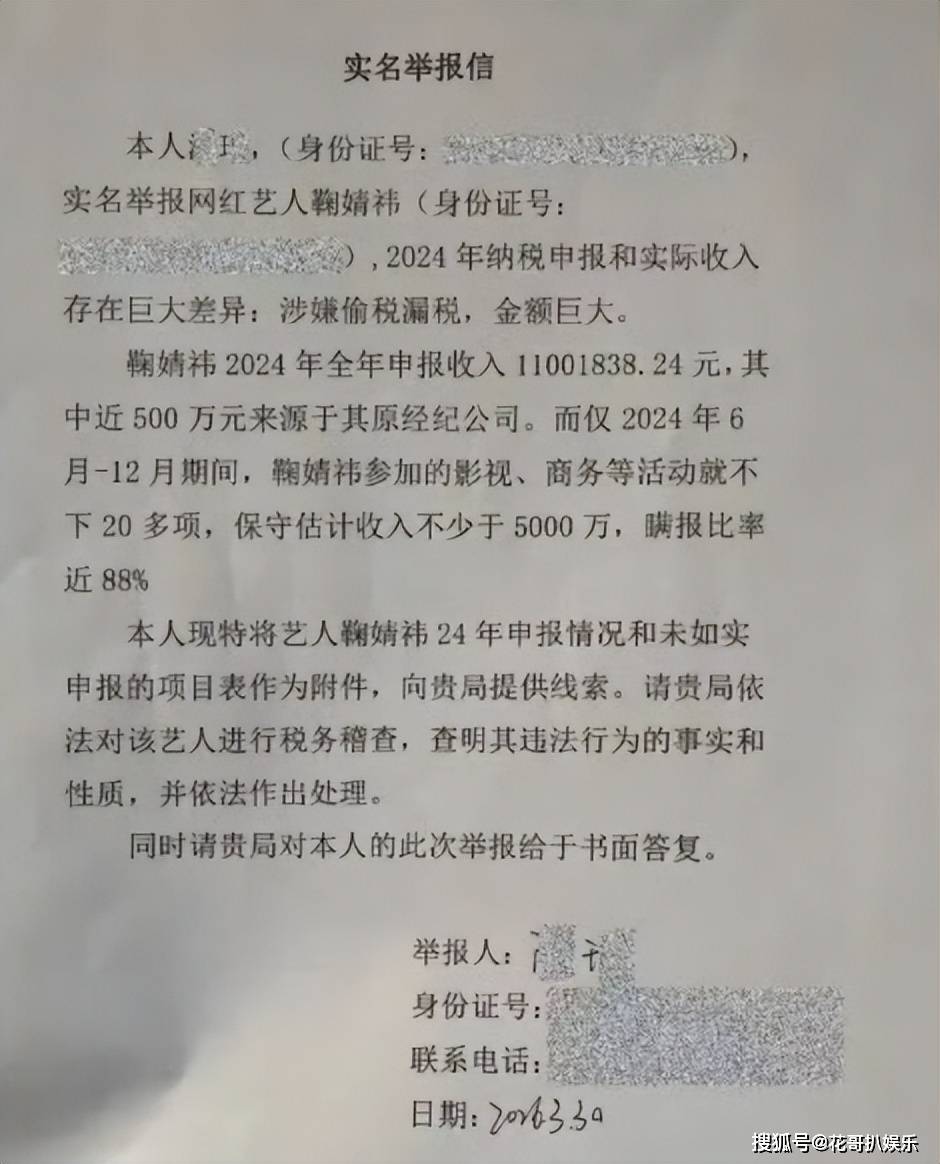 实名举报信
本人，（身份证号：），
实名举报网红艺人鞠婧祎（身份证号：
），2024 年纳税申报和实际收入
存在巨大差异：涉嫌偷税漏税，金额巨大。
鞠婧祎 2024 年全年申报收入 11001838.24 元，其
中近 500 万元来源于其原经纪公司。而仅 2024 年 6
月-12 月期间，鞠婧祎参加的影视、商务等活动就不
下 20 多项，保守估计收入不少于 5000 万，瞒报比率
近 88%
本人现特将艺人鞠婧祎 24 年申报情况和未如实
申报的项目表作为附件，向贵局提供线索。请贵局依
法对该艺人进行税务稽查，查明其违法行为的事实和
性质，并依法作出处理。
同时请贵局对本人的此次举报给于书面答复。
举报人：
身份证号：
联系电话：
日期：2026.3.30
搜狐号@花哥扒娱乐